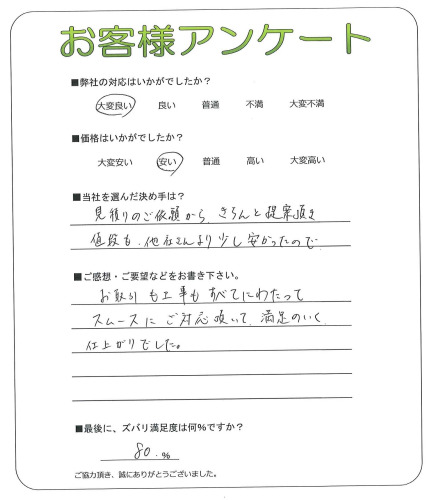 お客様アンケート
■弊社の対応はいかがでしたか？
大変良い 良い 普通 不満 大変不満
■価格はいかがでしたか？
大変安い 安い 普通 高い 大変高い
■当社を選んだ決め手は？
見積りのご依頼から、きちんと提案頂き
値段も、他社さんより少し安かったので
■ご感想・ご要望などをお書き下さい。
お取引も工事もすべてにわたって
スムースにご対応頂いて、満足のいく
仕上がりでした。
■最後に、ズバリ満足度は何％ですか？
80.％
ご協力頂き、誠にありがとうございました。